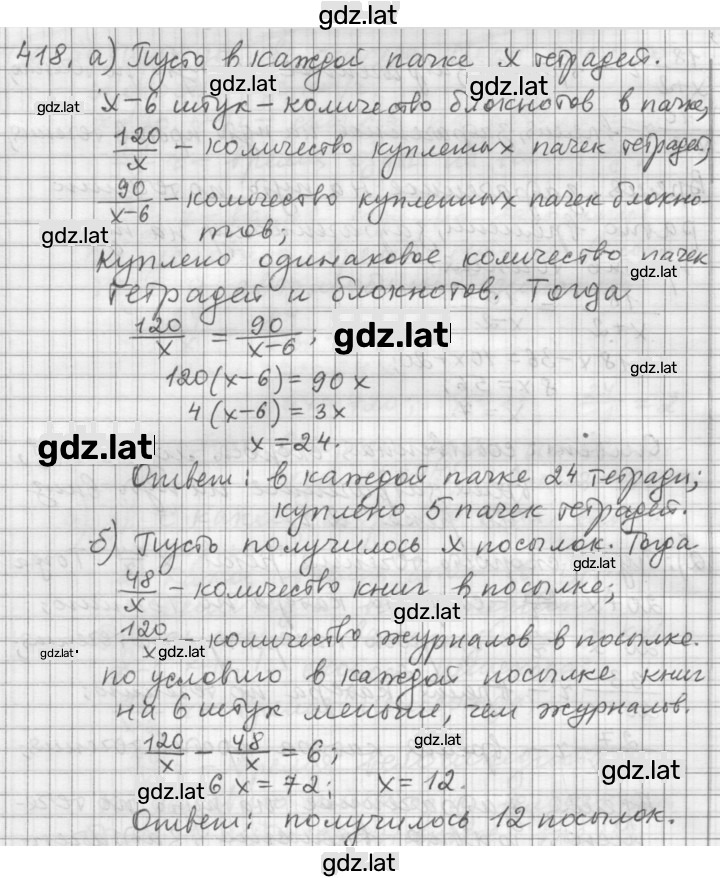 gdz.lat
418. а) Пусть в каждой пачке x тетрадей.
gdz.lat gdz.lat
gdz.lat x-6 штук - количество блокнотов в пачке,
120/x - количество купленных пачек тетрадей,
90/(x-6) - количество купленных пачек блокно-
gdz.lat тов;
Куплено одинаковое количество пачек
gdz.lat
тетрадей и блокнотов. Тогда
120/x = 90/(x-6); gdz.lat
gdz.lat
120(x-6) = 90x
4(x-6) = 3x
gdz.lat x = 24.
Ответ: в каждой пачке 24 тетради;
куплено 5 пачек тетрадей.
б) Пусть получилось x посылок. Тогда
gdz.lat
48/x - количество книг в посылке;
gdz.lat
120/x - количество журналов в посылке.
gdz.lat gdz.lat
по условию в каждой посылке книг
на 6 штук меньше, чем журналов.
gdz.lat
120/x - 48/x = 6;
gdz.lat
gdz.lat 6x = 72; x = 12.
Ответ: получилось 12 посылок.
gdz.lat